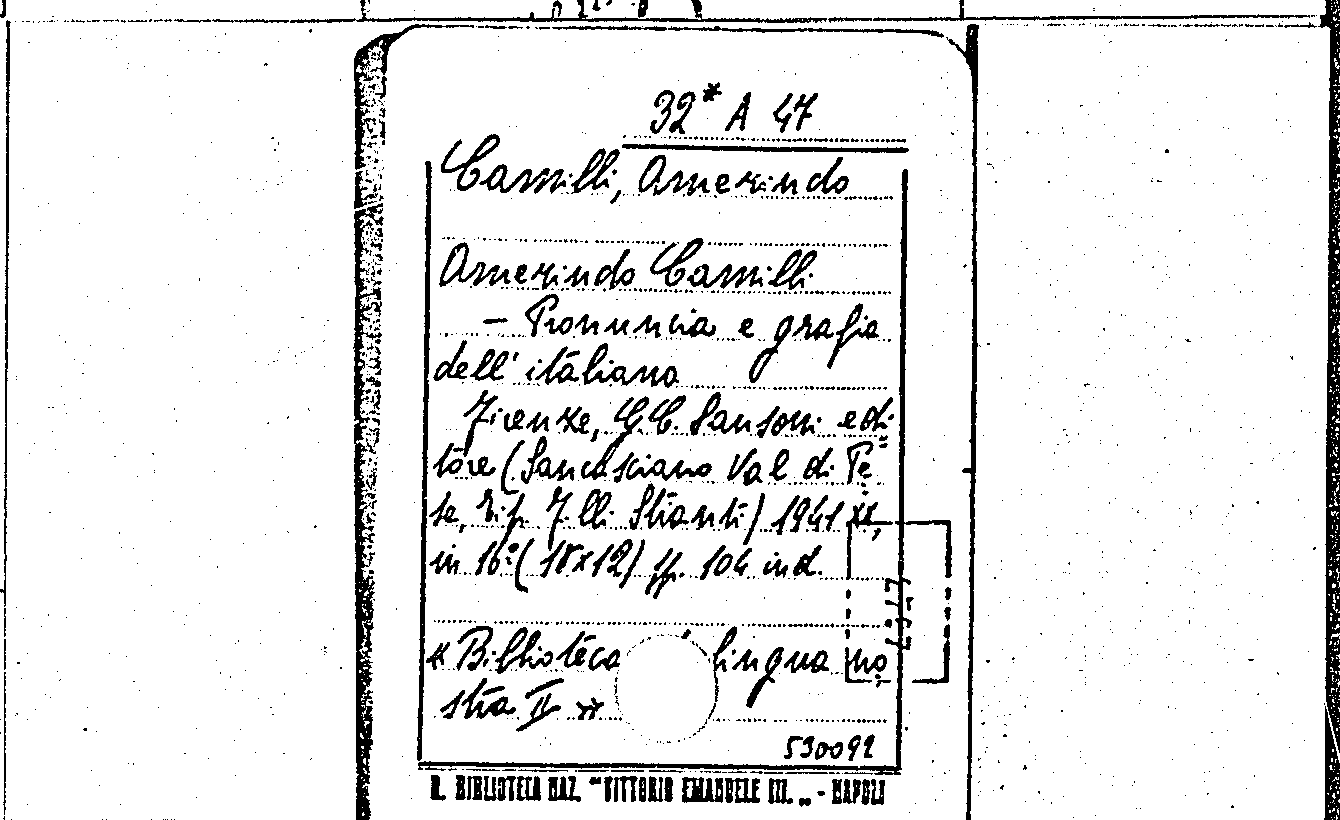 32* A 47
Camilli, Amerindo
Amerindo Camilli
- Pronuncia e grafia
dell' italiano
Firenze, G.C. Sansoni edi-
tore (Sancasciano Val di Pe=
sa, Tip. F.lli Stianti) 1941 XX,
in 16º (18x12) pp. 104 ind.
« Biblioteca lingua no
stra II »
530092
R. BIBLIOTECA NAZ. "VITTORIO EMANUELE III. „ - NAPOLI